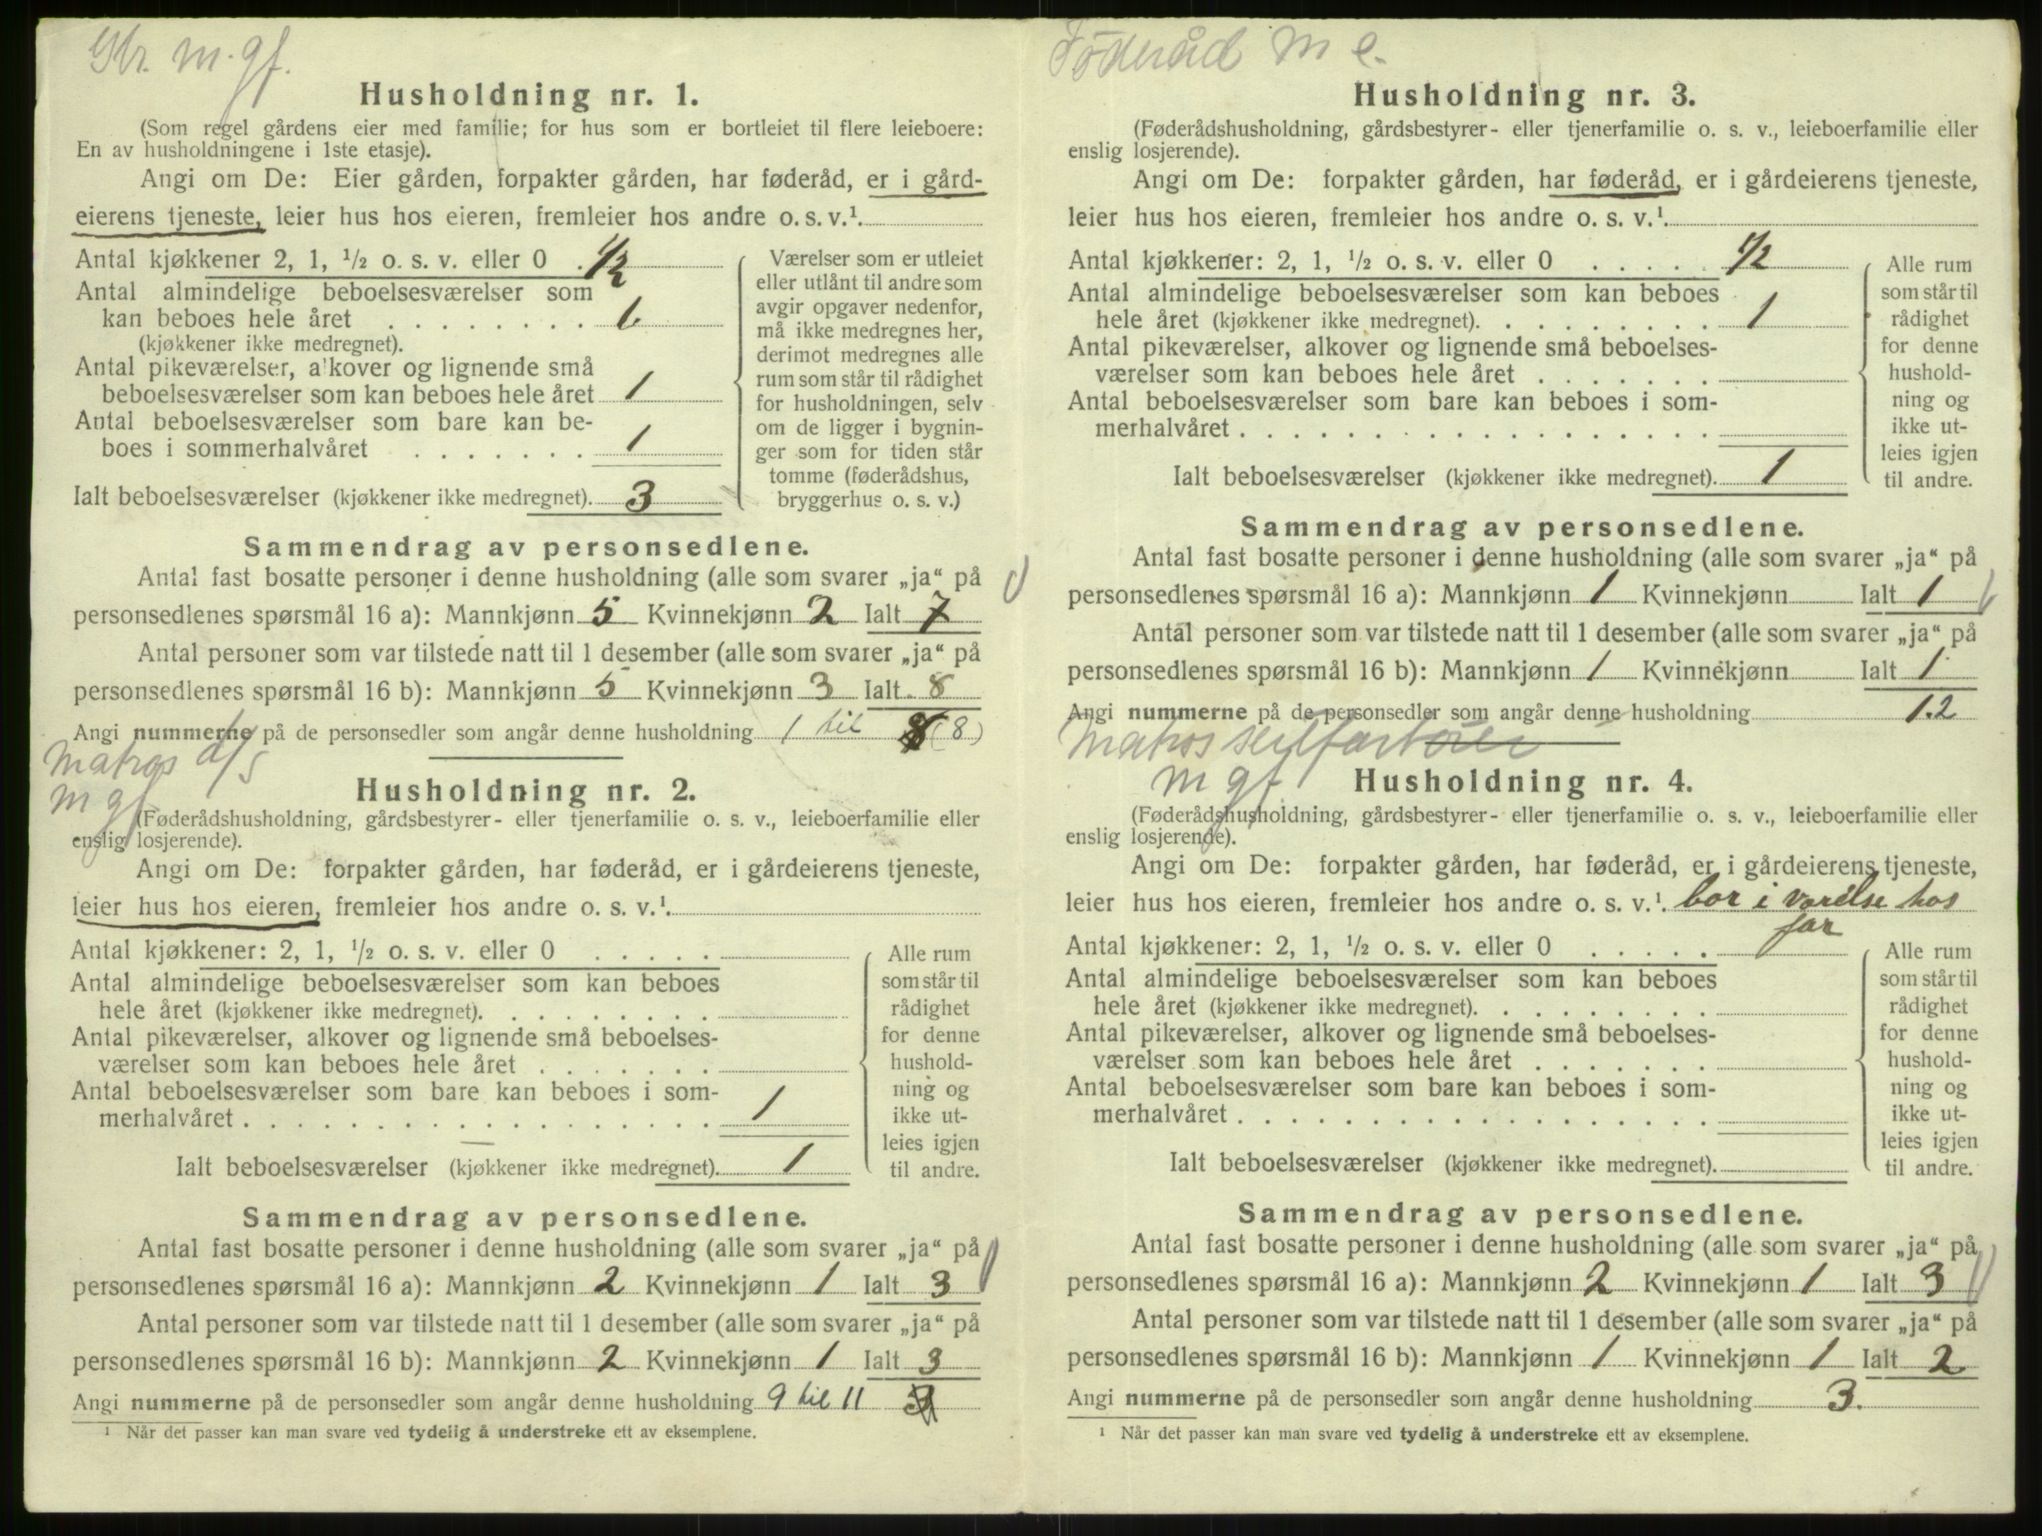 Gbr. m. gf.
Husholdning nr. 1.
(Som regel gårdens eier med familie; for hus som er bortleiet til flere leieboere:
En av husholdningene i 1ste etasje).
Angi om De: Eier gården, forpakter gården, har føderåd, er i gård-
eierens tjeneste, leier hus hos eieren, fremleier hos andre o. s. v.¹.
Antal kjøkkener 2, 1, ½ o. s. v. eller 0 . 1/2
Antal almindelige beboelsesværelser som
kan beboes hele året . . . . . . . . 1
(kjøkkener ikke medregnet).
Antal pikeværelser, alkover og lignende små
beboelsesværelser som kan beboes hele året 1
Antal beboelsesværelser som bare kan be-
boes i sommerhalvåret . . . . . . . 1
Ialt beboelsesværelser (kjøkkener ikke medregnet). 3
Værelser som er utleiet
eller utlånt til andre som
avgir opgaver nedenfor,
må ikke medregnes her,
derimot medregnes alle
rum som står til rådighet
for husholdningen, selv
om de ligger i bygnin-
ger som for tiden står
tomme (føderådshus,
bryggerhus o. s. v.)
Sammendrag av personsedlene.
Antal fast bosatte personer i denne husholdning (alle som svarer „ja“ på
personsedlenes spørsmål 16 a): Mannkjønn 5 Kvinnekjønn 2 Ialt 7
Antal personer som var tilstede natt til 1 desember (alle som svarer „ja“ på
personsedlenes spørsmål 16 b): Mannkjønn 5 Kvinnekjønn 3 Ialt 8
Angi nummerne på de personsedler som angår denne husholdning 1 til 8 (8)
Matros d/s
m gf
Husholdning nr. 2.
(Føderådshusholdning, gårdsbestyrer- eller tjenerfamilie o. s. v., leieboerfamilie eller
enslig losjerende).
Angi om De: forpakter gården, har føderåd, er i gårdeierens tjeneste,
leier hus hos eieren, fremleier hos andre o. s. v.¹.
Antal kjøkkener: 2, 1, ½ o. s. v. eller 0 . . . . .
Antal almindelige beboelsesværelser som kan beboes
hele året (kjøkkener ikke medregnet). . . . . . . . .
Antal pikeværelser, alkover og lignende små beboelses-
værelser som kan beboes hele året . . . . . . .
Antal beboelsesværelser som bare kan beboes i som-
merhalvåret . . . . . . . . . . . . . . . . . . 1
Ialt beboelsesværelser (kjøkkener ikke medregnet). 1
Alle rum
som står til
rådighet
for denne
hushold-
ning og
ikke ut-
leies igjen
til andre.
Sammendrag av personsedlene.
Antal fast bosatte personer i denne husholdning (alle som svarer „ja“ på
personsedlenes spørsmål 16 a): Mannkjønn 2 Kvinnekjønn 1 Ialt 3
Antal personer som var tilstede natt til 1 desember (alle som svarer „ja“ på
personsedlenes spørsmål 16 b): Mannkjønn 2 Kvinnekjønn 1 Ialt 3
Angi nummerne på de personsedler som angår denne husholdning 9 til 11
¹ Når det passer kan man svare ved tydelig å understreke ett av eksemplene.
Föderåd m e.
Husholdning nr. 3.
(Føderådshusholdning, gårdsbestyrer- eller tjenerfamilie o. s. v., leieboerfamilie eller
enslig losjerende).
Angi om De: forpakter gården, har føderåd, er i gårdeierens tjeneste,
leier hus hos eieren, fremleier hos andre o. s. v.¹.
Antal kjøkkener: 2, 1, ½ o. s. v. eller 0 . . . . . 1/2
Antal almindelige beboelsesværelser som kan beboes
hele året (kjøkkener ikke medregnet). . . . . . . . . 1
Antal pikeværelser, alkover og lignende små beboelses-
værelser som kan beboes hele året . . . . . . .
Antal beboelsesværelser som bare kan beboes i som-
merhalvåret . . . . . . . . . . . . . . . . . .
Ialt beboelsesværelser (kjøkkener ikke medregnet). 1
Alle rum
som står til
rådighet
for denne
hushold-
ning og
ikke ut-
leies igjen
til andre.
Sammendrag av personsedlene.
Antal fast bosatte personer i denne husholdning (alle som svarer „ja“ på
personsedlenes spørsmål 16 a): Mannkjønn 1 Kvinnekjønn Ialt 1
Antal personer som var tilstede natt til 1 desember (alle som svarer „ja“ på
personsedlenes spørsmål 16 b): Mannkjønn 1 Kvinnekjønn Ialt 1
Angi nummerne på de personsedler som angår denne husholdning 12
Matros seilfartöier
m gf
Husholdning nr. 4.
(Føderådshusholdning, gårdsbestyrer- eller tjenerfamilie o. s. v., leieboerfamilie eller
enslig losjerende).
Angi om De: forpakter gården, har føderåd, er i gårdeierens tjeneste,
leier hus hos eieren, fremleier hos andre o. s. v.¹. bor i værelse hos
far
Antal kjøkkener: 2, 1, ½ o. s. v. eller 0 . . . . .
Antal almindelige beboelsesværelser som kan beboes
hele året (kjøkkener ikke medregnet). . . . . . . . .
Antal pikeværelser, alkover og lignende små beboelses-
værelser som kan beboes hele året . . . . . . .
Antal beboelsesværelser som bare kan beboes i som-
merhalvåret . . . . . . . . . . . . . . . . . .
Ialt beboelsesværelser (kjøkkener ikke medregnet).
Alle rum
som står til
rådighet
for denne
hushold-
ning og
ikke ut-
leies igjen
til andre.
Sammendrag av personsedlene.
Antal fast bosatte personer i denne husholdning (alle som svarer „ja“ på
personsedlenes spørsmål 16 a): Mannkjønn 2 Kvinnekjønn 1 Ialt 3
Antal personer som var tilstede natt til 1 desember (alle som svarer „ja“ på
personsedlenes spørsmål 16 b): Mannkjønn 1 Kvinnekjønn 1 Ialt 2
Angi nummerne på de personsedler som angår denne husholdning 3.
¹ Når det passer kan man svare ved tydelig å understreke ett av eksemplene.